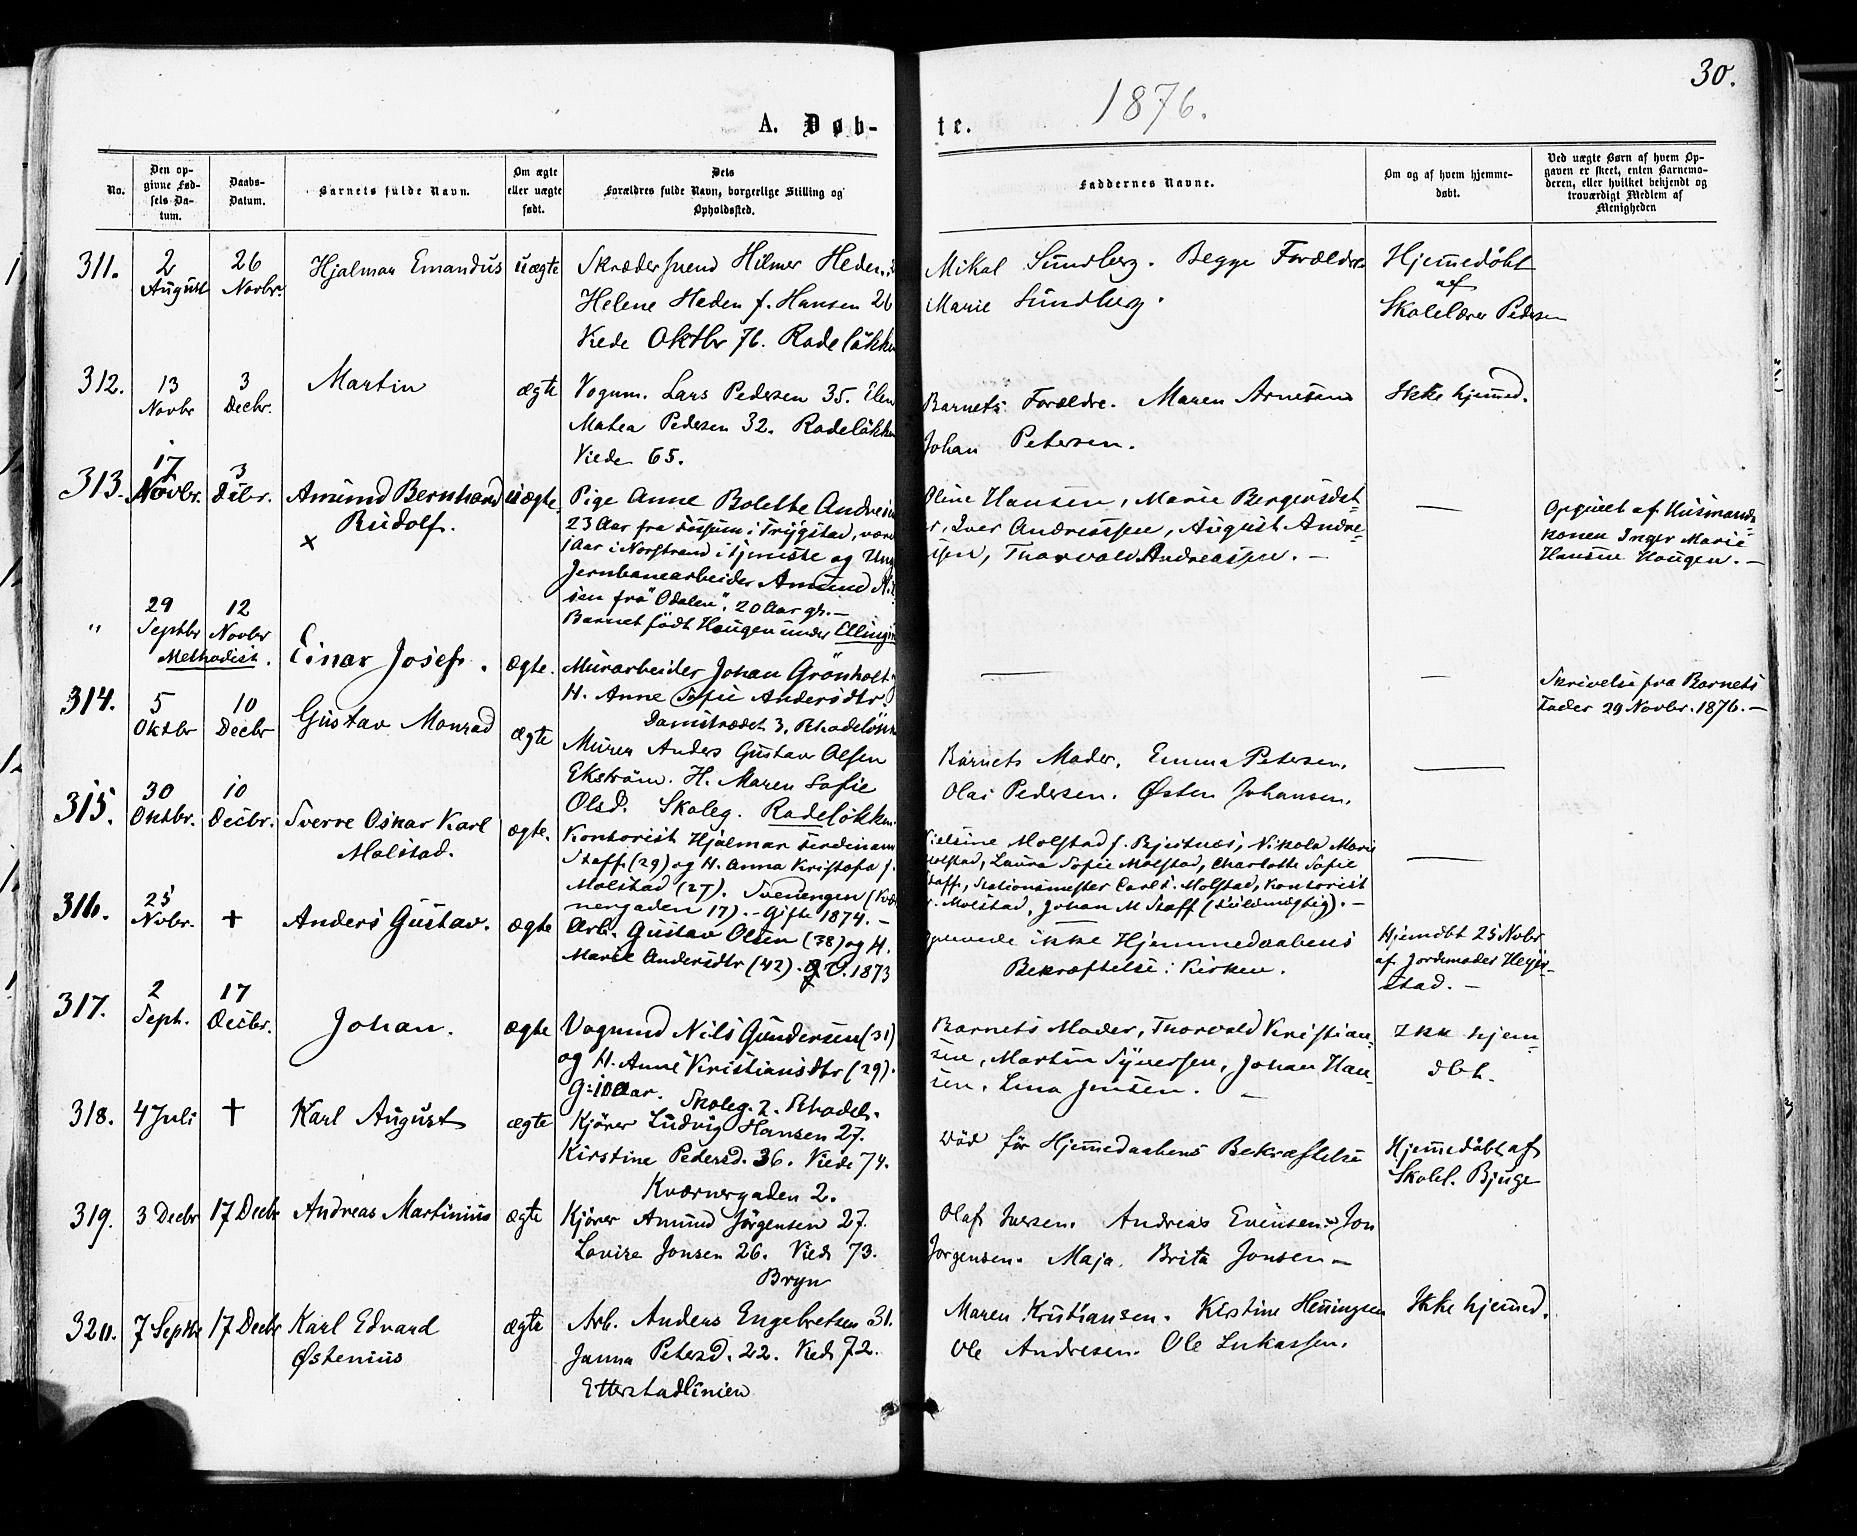 30.
1876.
A. Døb-
te.
No.
Den op-
givne Fød-
sels Da-
tum.
Daabs-
Datum.
Barnets fulde Navn.
Om ægte
eller uægte
født.
Dets
Forældres fulde Navn, borgerlige Stilling og
Opholdssted.
Faddernes Navne.
Om og af hvem hjemme-
døbt.
Ved uægte Børn af hvem Op-
gaven er skeet, enten Barnemo-
deren, eller hvilket bekjendt og
troværdigt Medlem af
Menigheden
311.
2
August
26
Novbr.
Hjalmar Emandus
uægte
Skrædersvend Hilmer Heden
Helene Heden f. Hansen 26
Viede Oktbr 76. Rodeløkken
Mikal Sundberg. Begge Forældre
Marie Sundberg.
Hjemmedøbt
af
Skolelærer Pedersen
312.
13
Novbr
3
Decbr.
Martin
ægte
Vognm. Lars Pedersen 35. Elen
Matea Pedersen 32. Rodeløkken
Viede 65.
Barnets Forældre. Maren Arnesen
Johan Petersen.
Ikke hjemmed.
313.
17
Novbr.
3
Decbr.
Amund Bernhard
Rudolf.
×
uægte.
Pige Anne Bolette Andresen
23 Aar fra Fossum i Trygstad, været
1 Aar i Norstrand i tjeneste og Ung
Jernbanearbeider Amund Nil-
sen fra "Odalen", 20 Aar gl. —
Barnet født Haugen under Ellings
Oline Hansen, Marie Bergersdat
r, Iver Andreassen, August Andre-
sen, Thorvald Andreassen. —
—
Opgivet af Husmands-
konen Inger Marie
Hansen Haugen. —
"
29
Septbr
12
Novbr
Methodist.
Einar Josef.
ægte.
Murarbeider Johan Grönholt
H. Anne Sofie Andersdtr.
Damstrædet 3. Rhodeløkk
—
—
Skrivelse fra Barnets
Fader 29 Novbr. 1876. —
314.
5
Oktbr
10
Decbr
Gustav Monrad
ægte
Murer Anders Gustav Olsen
Ekström. H. Maren Sofie
Olsd. Skoleg. Rodeløkken
Barnets Moder. Emma Petersen.
Olai Pedersen. Østen Johansen.
—
315.
30
Oktbr.
10
Decbr.
Sverre Oskar Karl
Molstad.
ægte.
Kontorist Hjalmar Ferdinan
Staff (29) og H. Anna Kristofa f.
Molstad (27). Svenengen (Kvær
nergaden 17). - Gifte 1874. —
Nielsine Molstad f. Bjertnæs, Nikola Marie
Molstad, Laura Sofie Molstad, Charlotte Sofie
Staff, Stationsmester Carl S. Molstad, Kontorist
Molstad, Johan M Staff (Fuldmægtig). —
—
316.
25
Novbr.
+
Anders Gustav.
ægte
Arb. Gustav Olsen (38) og H.
Marie Andersdtr (42). 1873
ikke Hjemmedaabens
Bekræftelse i Kirken.
Hjemdbt 25 Novbr
af Jordemoder Heger-
stad. —
317.
2
Septb.
17
Decbr.
Johan.
ægte
Vognmd Nils Gundersen (31)
og H. Anne Kristiansdtr (29).
G: 10 Aar. Skoleg. 2. Rhodel.
Barnets Moder, Thorvald Kristian-
sen, Martin Syversen, Johan Han-
sen, Lina Jensen. —
Ikke hjem-
dbt.
318.
4 Juli
+
Karl August
ægte
Kjører Ludvig Hansen 27.
Kirstine Pedersd. 36. Viede 74.
Kværnergaden 2.
Död för Hjemmedaabens Bekræftelse
Hjemmedøbt af
Skolel. Bjuge
319.
3 Decbr
17 Decbr
Andreas Martinius
ægte
Kjører Amund Jørgensen 27.
Lovise Jonsen 26. Viede 73.
Bryn
Olaf Iversen. Andreas Evensen. Jon
Jørgensen. Maja. Brita Jonsen —
320.
7 Septbr
17 Decbr
Karl Edvard
Østenius
ægte
Arb. Anders Engebretsen 31.
Janna Petersd. 22. Viede 72.
Etterstadlinien
Maren Kristiansen. Kistine Henningsen
Ole Andresen. Ole Lukassen.
Ikke hjemmed.